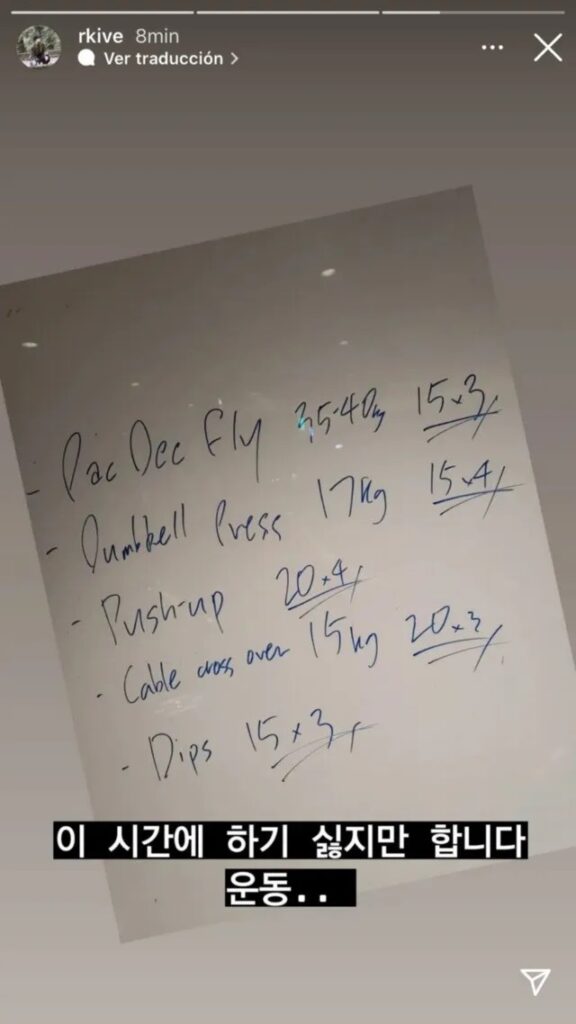 rkive 8min
Ver traducción >
- Pac Dec Fly 35-40kg 15x3
- Dumbbell Press 17kg 15x4
- Push-up 20x4
- Cable cross over 15kg 20x3
- Dips 15x3
이 시간에 하기 싫지만 합니다
운동..